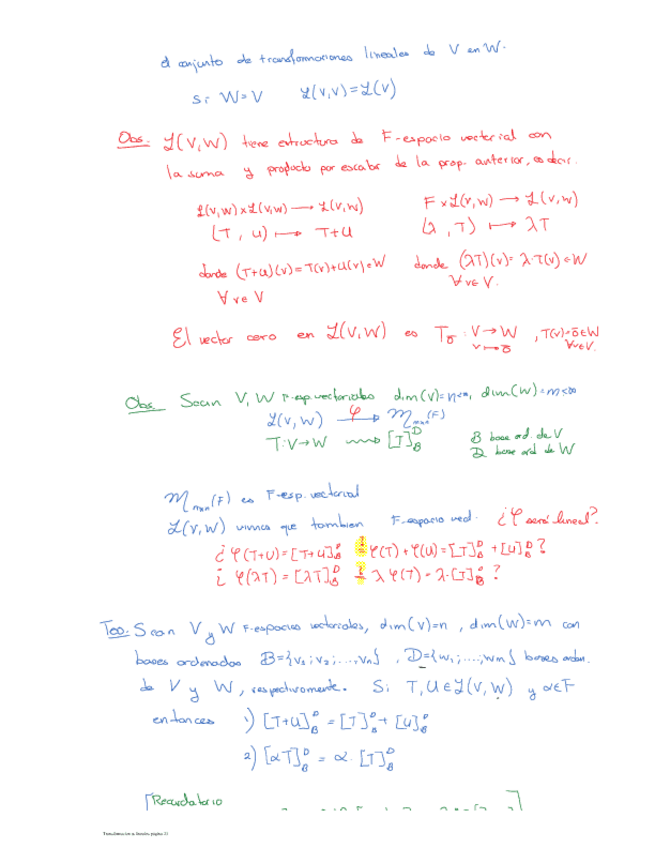 el conjunto de transformaciones lineales de V en W.
Si W=V   ℒ(V,V)=ℒ(V)
Obs. ℒ(V,W) tiene estructura de F-espacio vectorial con
la suma y producto por escalar de la prop. anterior, es decir.
ℒ(V,W)×ℒ(V,W) ⟶ ℒ(V,W)   F×ℒ(V,W) ⟶ ℒ(V,W)
(T, U) ⟼ T+U   (λ, T) ⟼ λT
donde (T+U)(v)=T(v)+U(v)∈W   donde (λT)(v)=λ·T(v)∈W
∀v∈V   ∀v∈V.
El vector cero en ℒ(V,W) es T_0̄ : V→W , T(v)=0̄∈W
v⟼0̄   ∀v∈V.
Obs. Sean V, W F-esp. vectoriales dim(V)=n<∞, dim(W)=m<∞
ℒ(V,W) ⟶^φ M_{m×n}(F)
T:V→W ⟿ [T]_B^D   B base ord. de V
D base ord de W
M_{m×n}(F) es F-esp. vectorial
ℒ(V,W) vimos que tambien F-espacio vect. ¿φ será lineal?
¿φ(T+U)=[T+U]_B^D ≟ φ(T)+φ(U)=[T]_B^D+[U]_B^D?
¿φ(λT)=[λT]_B^D ≟ λφ(T)=λ·[T]_B^D?
Teo: Sean V y W F-espacios vectoriales, dim(V)=n, dim(W)=m con
bases ordenadas B={v₁;v₂;...;vₙ}, D={w₁;...;wₘ} bases orden.
de V y W, respectivamente. Si T,U∈ℒ(V,W) y α∈F
entonces 1) [T+U]_B^D=[T]_B^D+[U]_B^D
2) [αT]_B^D=α·[T]_B^D
[Recordatorio
Transformaciones lineales página 21